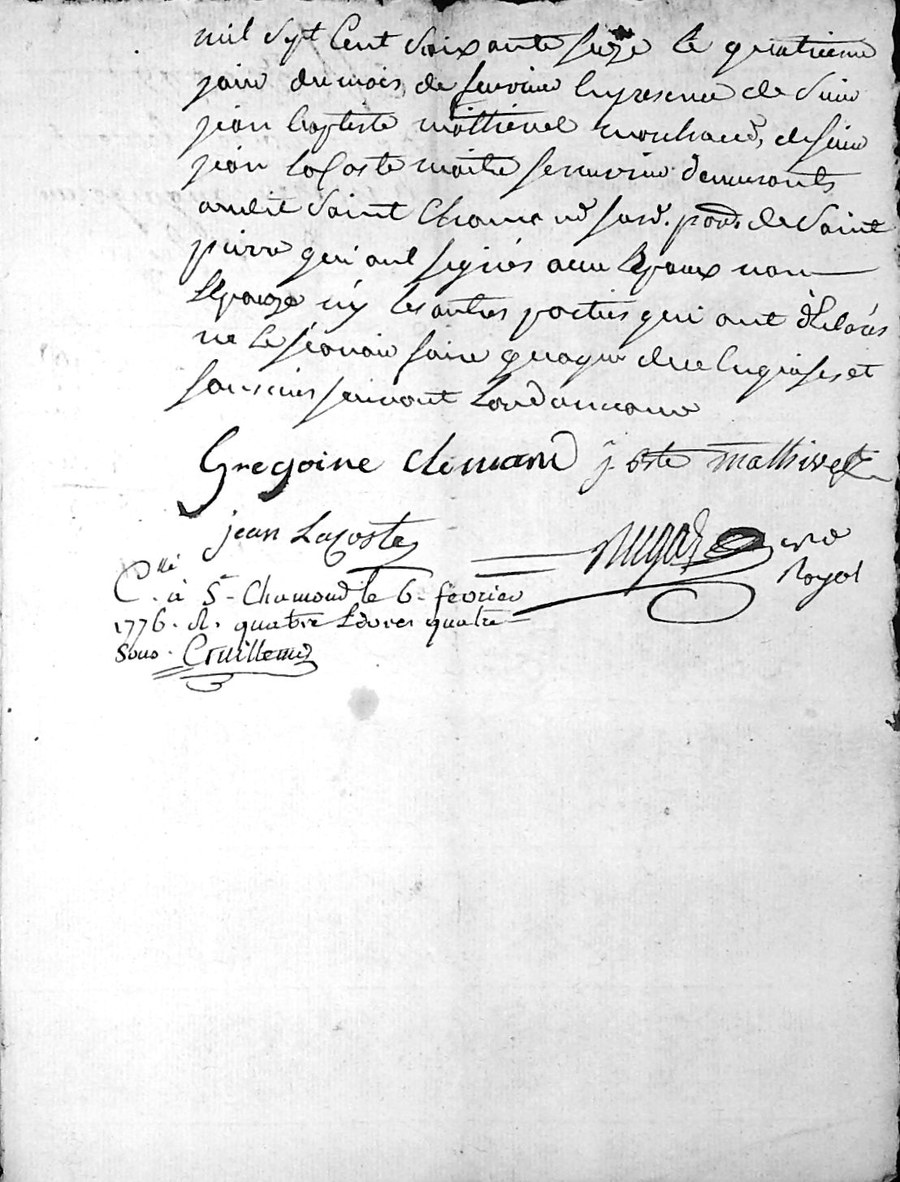 mil Sept Cent Soixante Seize le quatrieme
jour du mois de fevrier En presence de Sieur
jean baptiste mathievet marchand, de sieur
jean LaCoste maitre serrurier demeurants
audit Saint Chamond susd. parr de Saint
pierre qui ont signés avec Lepoux non
Lepouze ny les autres parties qui ont déclarés
ne le sçavoir faire quoyque de ce Enquises et
Lordonnance
Gregoire Clemand j bste mathivet
jean LaCoste
nre Royal
C.llé à St Chamond le 6 fevrier
1776. R. quatre Livres quatre
Sous.